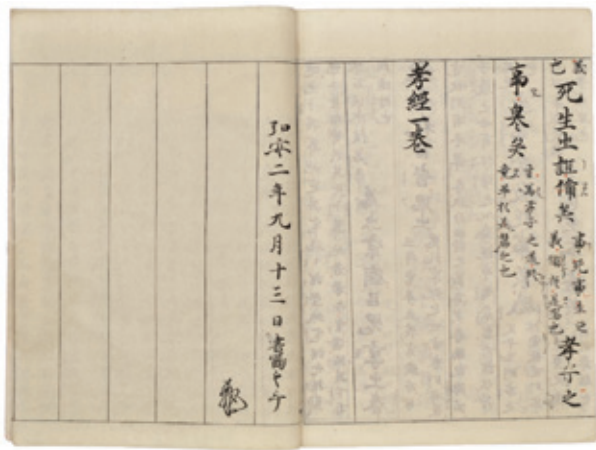 義也
死生之誼備矣
事死事生之
義備於是也
孝子之
事畢矣
言爲孝子之道終
竟畢於是篇也
孝經一卷
弘安二年九月十三日書寫了